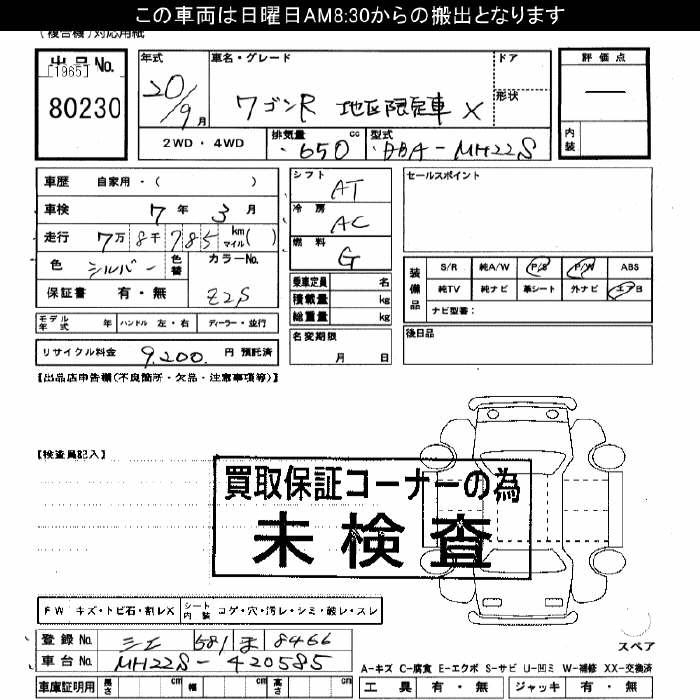 この車両は日曜日AM8:30からの搬出となります
(複合機)対応用紙
出品No.
[1965]
80230
年式 車名・グレード ドア
20/9月 ワゴンR 地区限定車 X 形状
2WD・4WD 排気量 ・650 cc 型式 ・DBA-MH22S
評価点
内装
車歴 自家用・( )
車検 7年 3月
走行 7万 8千 785 km マイル( )
色 シルバー 色替 カラーNo.
保証書 有・無 Z2S
モデル年式 年 ハンドル 左・右 ディーラー・並行
リサイクル料金 9,200. 円 預託済
シフト AT
冷房 AC
燃料 G
乗車定員 名
積載量 kg
総重量 kg
名変期限
月 日
セールスポイント
装備品 S/R 純A/W P/S P/W ABS
純TV 純ナビ 革シート 外ナビ エアB
ナビ型番:
後日品
【出品店申告欄(不良箇所・欠品・注意事項等)】
【検査員記入】
買取保証コーナーの為
未検査
FW キズ・トビ石・割レX シート内装 コゲ・穴・汚レ・シミ・破レ・スレ
登録No. 581 8466
車台No. MH22S-420585
車庫証明用 長さ cm 幅 cm 高さ cm
スペア
A-キズ C-腐食 E-エクボ S-サビ U-凹ミ W-補修 XX-交換済
工具 有・無 ジャッキ 有・無